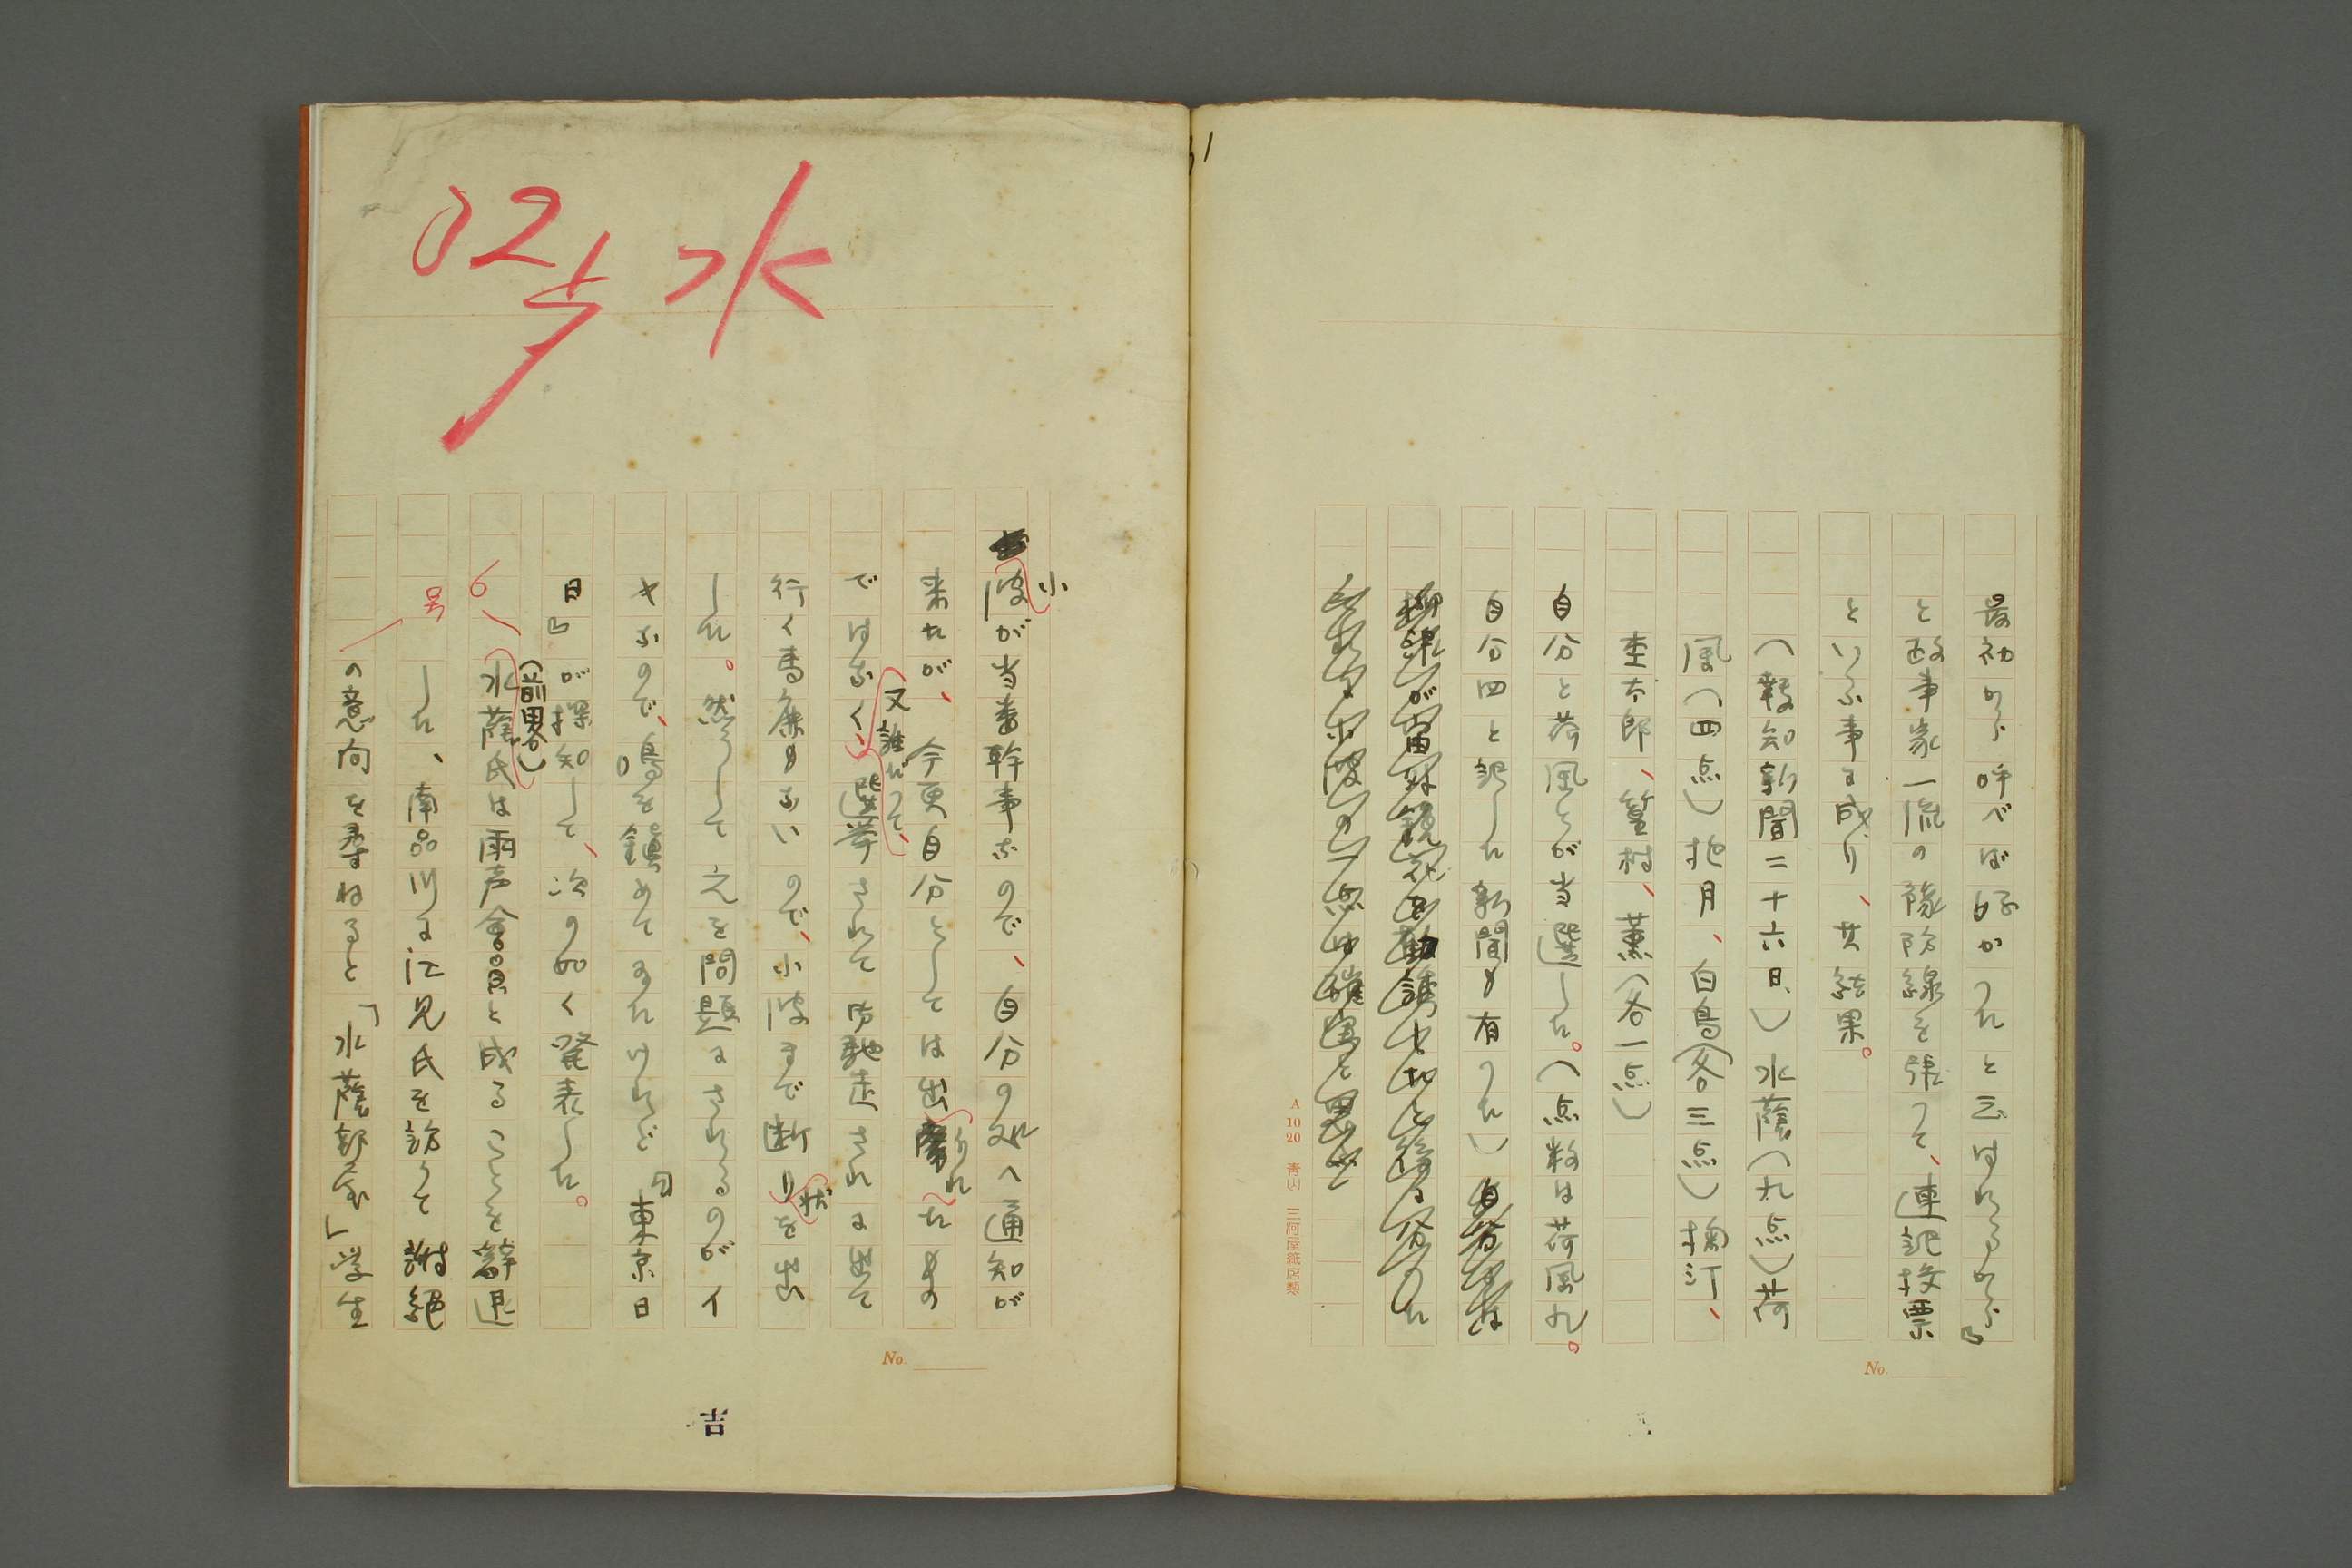 最初から呼べば好かつたと云はれるから』
と政事家一流の予防線を張つて、連記投票
といふ事に成り、其結果。
(報知新聞二十六日、)水蔭(九点)荷
風(四点)抱月、白鳥(各三点)掬汀、
杢太郎、篁村、薫(各一点)
自分と荷風とが当選した。(点数は荷風九。
自分四と記した新聞も有つた)
A 10 20 青山 三河屋紙店製
No.
31
02 水
小波が当番幹事なので、自分の処へ通知が
来たが、今更自分としては出られたもの
ではなく、又誰だつて、選挙されて御馳走されに出て
行く馬鹿もないので、小波まで断り状を出
した。然うして之を問題にされるのがイ
ヤなので、鳥を鎮めてゐたけれど『東京日
日』が探知して、次の如く発表した。
(前略)
水蔭氏は雨声会員と成ることを辞退
した、南品川に江見氏を訪うて謝絶
の意向を尋ねると「水蔭部屋」学生
号
No.